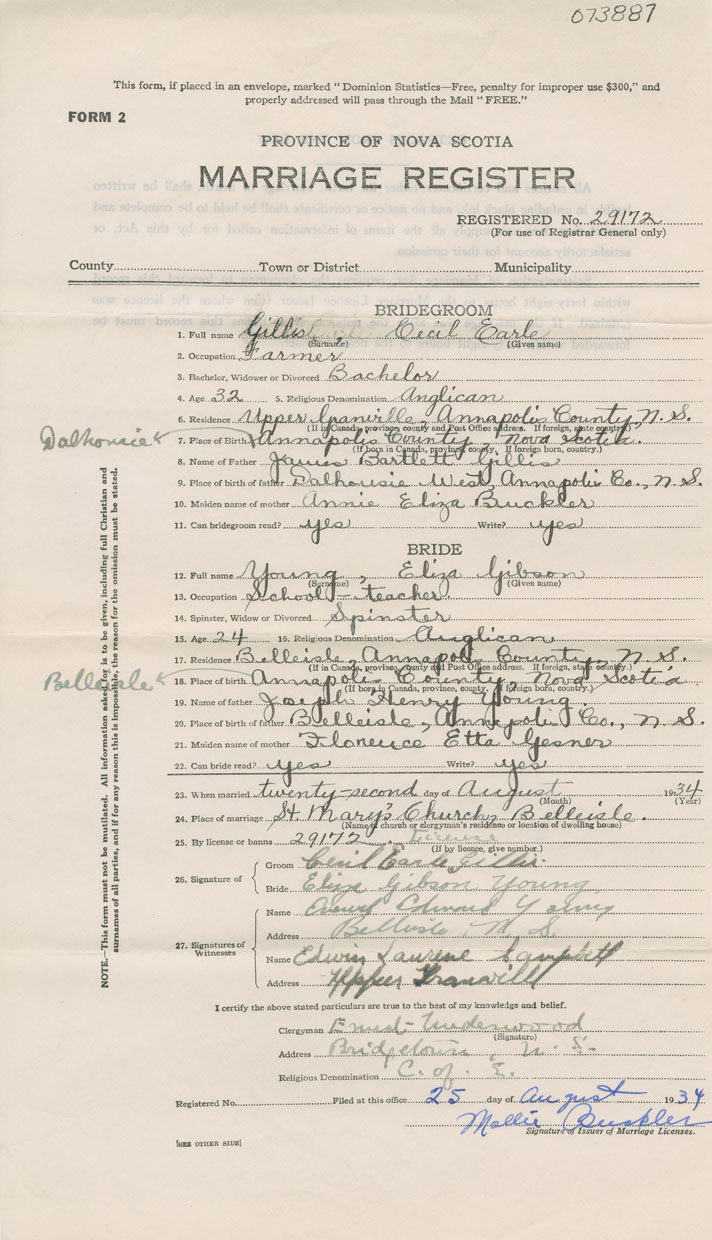 073887
This form, if placed in an envelope, marked "Dominion Statistics—Free, penalty for improper use $300," and
properly addressed will pass through the Mail "FREE."
FORM 2
PROVINCE OF NOVA SCOTIA
MARRIAGE REGISTER
REGISTERED No. 29172
(For use of Registrar General only)
County Town or District Municipality
BRIDEGROOM
1. Full name Gillis Cecil Earle
(Surname) (Given name)
2. Occupation Farmer
3. Bachelor, Widower or Divorced Bachelor
4. Age 32 5. Religious Denomination Anglican
6. Residence Upper Granville, Annapolis County, N. S.
(If in Canada, province, county and Post Office address. If foreign, state country.)
Dalhousie
7. Place of Birth Annapolis County, Nova Scotia.
(If born in Canada, province, county. If foreign born, country.)
8. Name of Father James Bartlett Gillis
9. Place of birth of father Dalhousie West, Annapolis Co., N. S.
10. Maiden name of mother Annie Eliza Buckler
11. Can bridegroom read? yes Write? yes
BRIDE
12. Full name Young, Eliza Gibson
(Surname) (Given name)
13. Occupation School-teacher
14. Spinster, Widow or Divorced Spinster
15. Age 24 16. Religious Denomination Anglican
17. Residence Belleisle, Annapolis County, N. S.
(If in Canada, province, county and Post Office address. If foreign, state country.)
Belleisle
18. Place of birth Annapolis County, Nova Scotia
(If born in Canada, province, county. If foreign born, country.)
19. Name of father Joseph Henry Young.
20. Place of birth of father Belleisle, Annapolis Co., N. S.
21. Maiden name of mother Florence Etta Gesner
22. Can bride read? yes Write? yes
23. When married twenty-second day of August 1934
(Month) (Year)
24. Place of marriage St. Mary's Church, Belleisle.
(Name of church or clergyman's residence or location of dwelling house)
25. By license or banns 29172. License
(If by licence, give number.)
26. Signature of
Groom Cecil Earle Gillis.
Bride Eliza Gibson Young
27. Signatures of Witnesses
Name Edward Young
Address Belleisle N. S
Name Edwin
Address Upper Granville
I certify the above stated particulars are true to the best of my knowledge and belief.
Clergyman Ernest Underwood
(Signature)
Address Bridgetown, N. S.
Religious Denomination C. of E.
Registered No. Filed at this office 25 day of August 1934
Mollie Buckler
Signature of Issuer of Marriage Licenses.
[SEE OTHER SIDE]
NOTE.—This form must not be mutilated. All information asked for is to be given, including full Christian and
surnames of all parties, and if for any reason this is impossible, the reason for the omission must be stated.